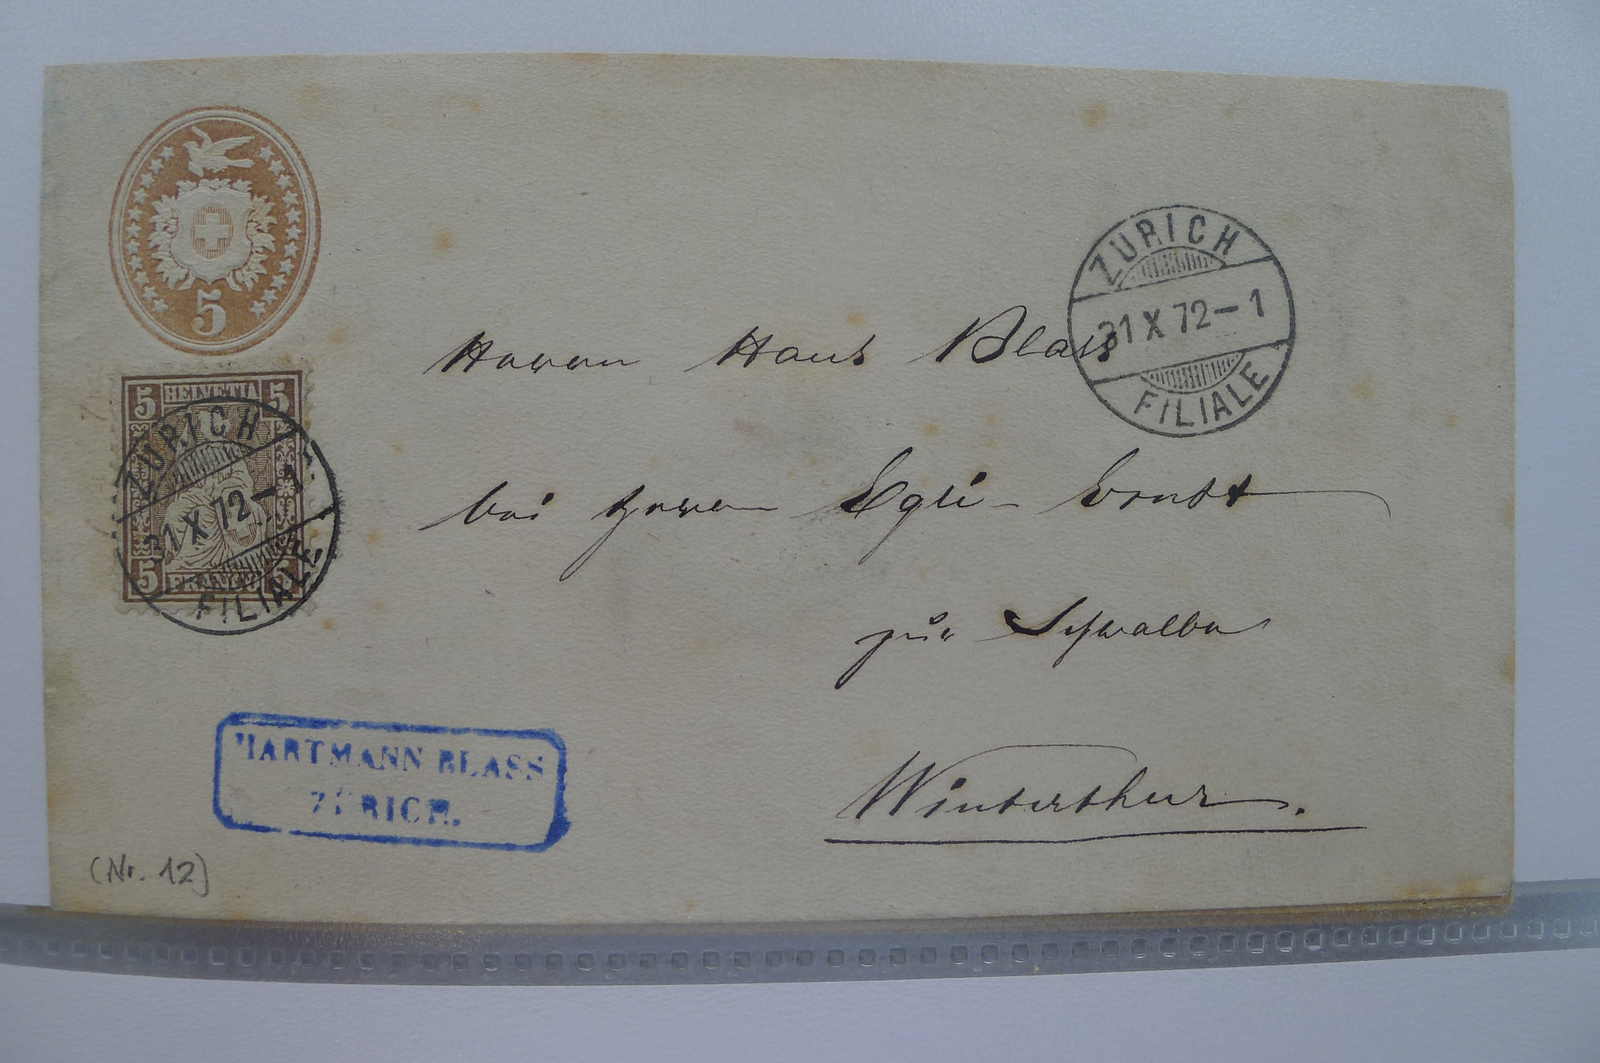 5
5 HELVETIA 5
5 FRANCO 5
ZÜRICH
31 X 72-1
FILIALE
ZÜRICH
31 X 72-1
FILIALE
Herrn Hans Blass
bei Herrn Egli-Ernst
zur Schwalbe
Winterthur.
HARTMANN BLASS
ZÜRICH.
(Nr. 12)